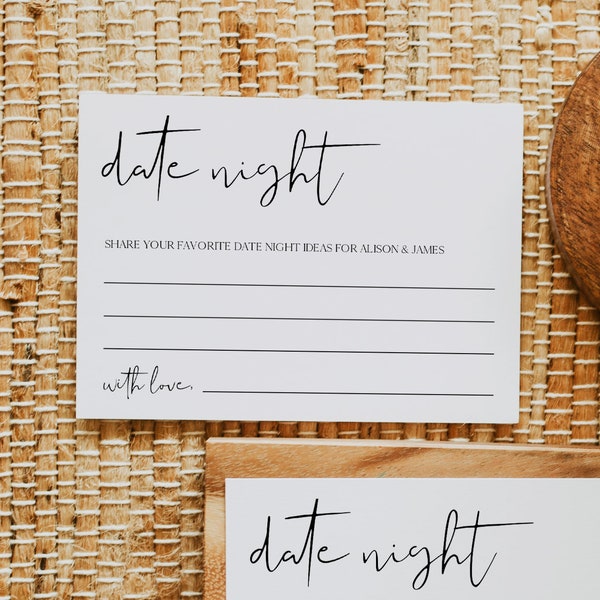 date night
SHARE YOUR FAVORITE DATE NIGHT IDEAS FOR ALISON & JAMES
with love,
date night